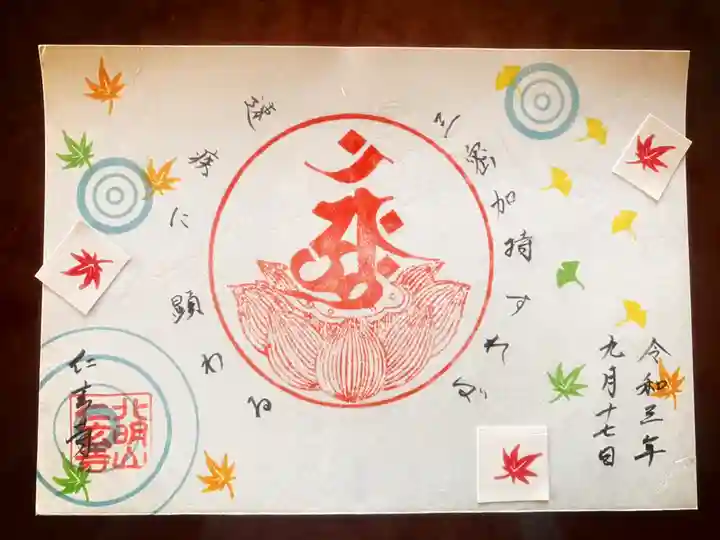 三密加持すれば
速疾に顕わる
令和三年
九月十七日
仁玄寺
北明山
仁玄寺